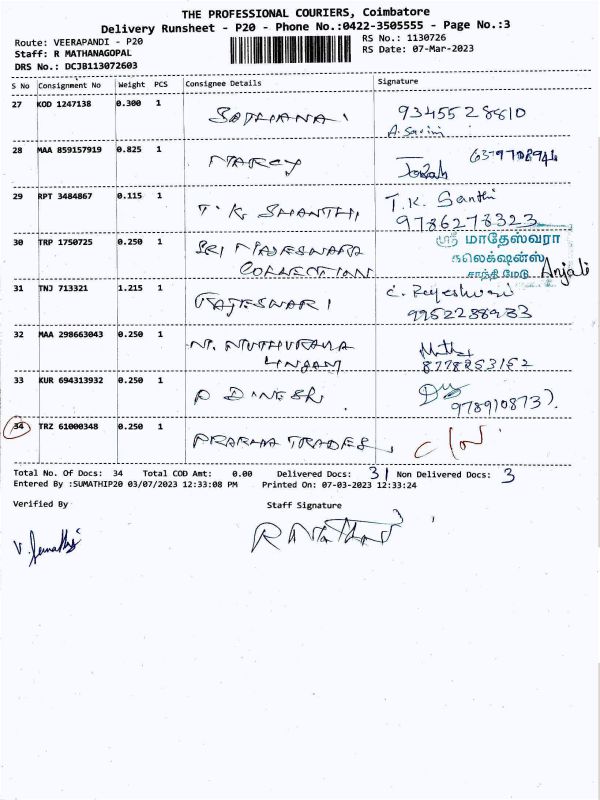 THE PROFESSIONAL COURIERS, Coimbatore
Delivery Runsheet - P20 - Phone No.:0422-3505555 - Page No.:3
Route: VEERAPANDI - P20
Staff: R MATHANAGOPAL
DRS No.: DCJB113072603
RS No.: 1130726
RS Date: 07-Mar-2023
S No Consignment No Weight PCS Consignee Details Signature
27 KOD 1247138 0.300 1 SADHANA 9345528810
28 MAA 859157919 0.825 1 MARCY
29 RPT 3484867 0.115 1 T.K. SHANTHI T.K. Santhi
9786278323
30 TRP 1750725 0.250 1 SRI MADESWARA ஸ்ரீ மாதேஸ்வரா
COLLECTION கலெக்ஷன்ஸ்
சாந்தி மேடு Anjali
31 TNJ 713321 1.215 1 RAJESWARI C. Rajeshwari
9952288933
32 MAA 298663043 0.250 1
8778253152
33 KUR 694313932 0.250 1 P DINESH
34 TRZ 61000348 0.250 1 TRADES
Total No. Of Docs: 34 Total COD Amt: 0.00 Delivered Docs: 31 Non Delivered Docs: 3
Entered By :SUMATHIP20 03/07/2023 12:33:08 PM Printed On: 07-03-2023 12:33:24
Verified By Staff Signature